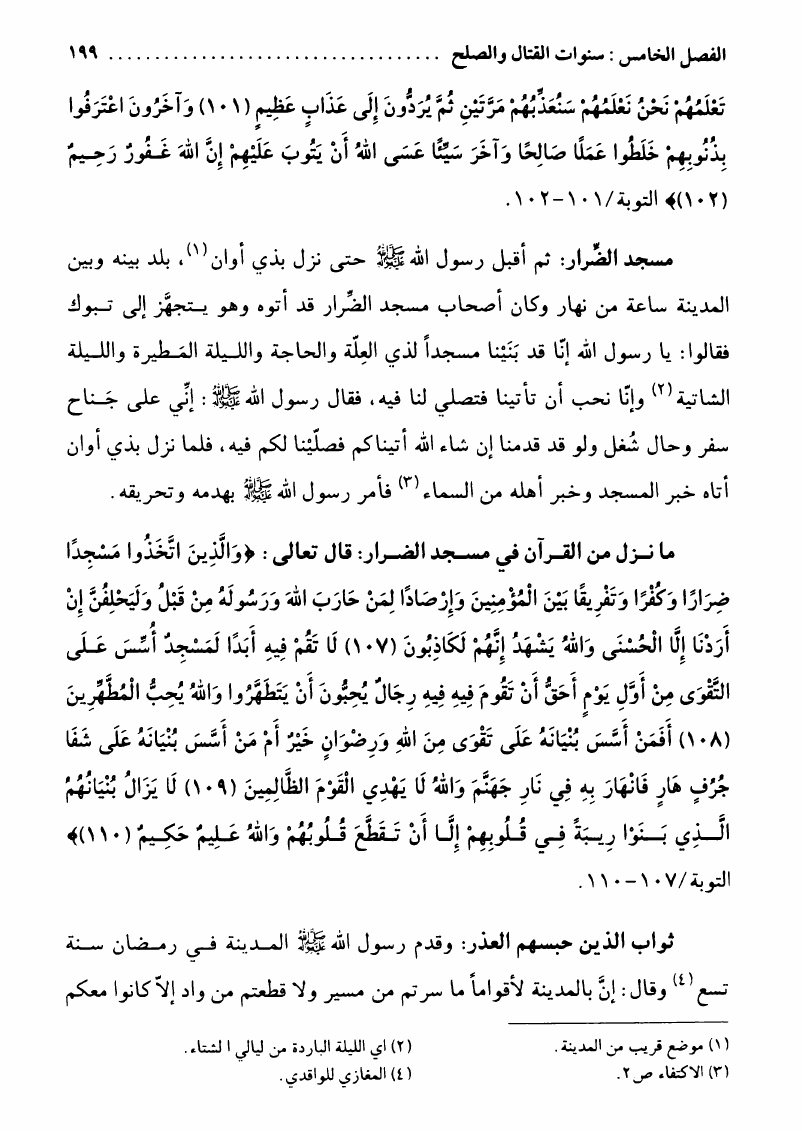 الفصل الخامس : سنوات القتال والصلح .................................... ١٩٩
تَعْلَمُهُمْ نَحْنُ نَعْلَمُهُمْ سَنُعَذِّبُهُمْ مَرَّتَيْنِ ثُمَّ يُرَدُّونَ إِلَى عَذَابٍ عَظِيمٍ (١٠١) وَآخَرُونَ اعْتَرَفُوا
بِذُنُوبِهِمْ خَلَطُوا عَمَلًا صَالِحًا وَآخَرَ سَيِّئًا عَسَى اللهُ أَنْ يَتُوبَ عَلَيْهِمْ إِنَّ اللهَ غَـفُورٌ رَحِـيمٌ
(١٠٢)﴾ التوبة/١٠١-١٠٢.
مسجد الضِّرار: ثم أقبل رسول الله ﷺ حتى نزل بذي أوان(١)، بلد بينه وبين
المدينة ساعة من نهار وكان أصحاب مسجد الضِّرار قد أتوه وهو يـتجهَّز إلى تـبوك
فقالوا: يا رسول الله إنّا قد بَنَيْنا مسجداً لذي العِلّة والحاجة والليـلة المَـطيرة والليـلة
الشاتية(٢) وإنّا نحب أن تأتينا فتصلي لنا فيه، فقال رسول الله ﷺ : إنِّي على جَـناح
سفر وحال شُغل ولو قد قدمنا إن شاء الله أتيناكم فصلّيْنا لكم فيه، فلما نزل بذي أوان
أتاه خبر المسجد وخبر أهله من السماء(٣) فأمر رسول الله ﷺ بهدمه وتحريقه.
ما نـزل من القـرآن في مسـجد الضـرار: قال تعالى: ﴿وَالَّذِينَ اتَّخَذُوا مَسْجِدًا
ضِرَارًا وَكُفْرًا وَتَفْرِيقًا بَيْنَ الْمُؤْمِنِينَ وَإِرْصَادًا لِمَنْ حَارَبَ اللهَ وَرَسُولَهُ مِنْ قَبْلُ وَلَيَحْلِفُنَّ إِنْ
أَرَدْنَا إِلَّا الْحُسْنَى وَاللهُ يَشْهَدُ إِنَّهُمْ لَكَاذِبُونَ (١٠٧) لَا تَقُمْ فِيهِ أَبَدًا لَمَسْجِدٌ أُسِّسَ عَـلَى
التَّقْوَى مِنْ أَوَّلِ يَوْمٍ أَحَقُّ أَنْ تَقُومَ فِيهِ فِيهِ رِجَالٌ يُحِبُّونَ أَنْ يَتَطَهَّرُوا وَاللهُ يُحِبُّ الْمُطَّهِّرِينَ
(١٠٨) أَفَمَنْ أَسَّسَ بُنْيَانَهُ عَلَى تَقْوَى مِنَ اللهِ وَرِضْوَانٍ خَيْرٌ أَمْ مَنْ أَسَّسَ بُنْيَانَهُ عَلَى شَفَا
جُرُفٍ هَارٍ فَانْهَارَ بِهِ فِي نَارِ جَهَنَّمَ وَاللهُ لَا يَهْدِي الْقَوْمَ الظَّالِمِينَ (١٠٩) لَا يَزَالُ بُنْيَانُهُمُ
الَّـذِي بَـنَوْا رِيـبَةً فِـي قُـلُوبِهِمْ إِلَّـا أَنْ تَـقَطَّعَ قُـلُوبُهُمْ وَاللهُ عَـلِيمٌ حَكِـيمٌ (١١٠)﴾
التوبة/١٠٧-١١٠.
ثواب الذين حبسهم العذر: وقدم رسول الله ﷺ المـدينة فـي رمـضان سـنة
تسع(٤) وقال: إنَّ بالمدينة لأقواماً ما سرتم من مسير ولا قطعتم من واد إلاّ كانوا معكم
(١) موضع قريب من المدينة.
(٢) اي الليلة الباردة من ليالي ا لشتاء.
(٣) الاكتفاء ص٢.
(٤) المغازي للواقدي.